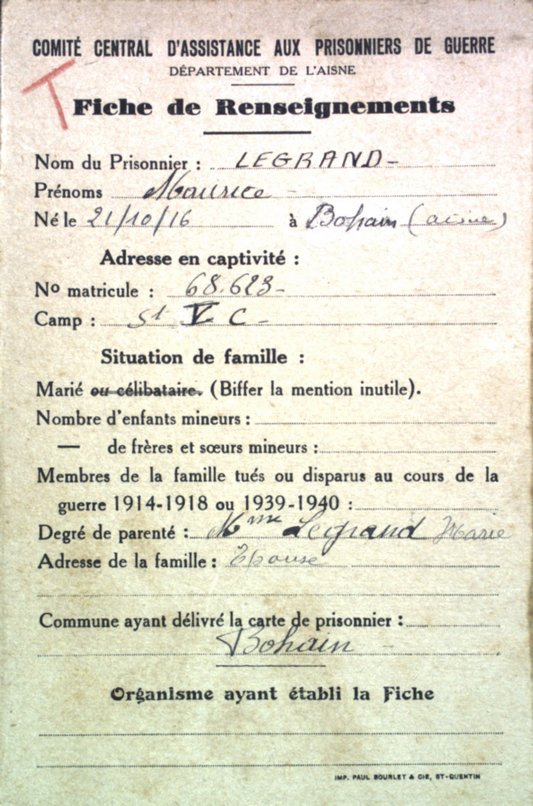 COMITÉ CENTRAL D'ASSISTANCE AUX PRISONNIERS DE GUERRE
DÉPARTEMENT DE L'AISNE
T
Fiche de Renseignements
Nom du Prisonnier : LEGRAND -
Prénoms Maurice -
Né le 21/10/16 à Bohain (aisne)
Adresse en captivité :
No matricule : 68.623 -
Camp : St V C -
Situation de famille :
Marié ou célibataire. (Biffer la mention inutile).
Nombre d'enfants mineurs :
— de frères et sœurs mineurs :
Membres de la famille tués ou disparus au cours de la
guerre 1914-1918 ou 1939-1940 :
Degré de parenté : Mme Legrand Marie
Adresse de la famille : Epouse
Commune ayant délivré la carte de prisonnier :
Bohain -
Organisme ayant établi la Fiche
IMP. PAUL BOURLET & CIE, ST-QUENTIN